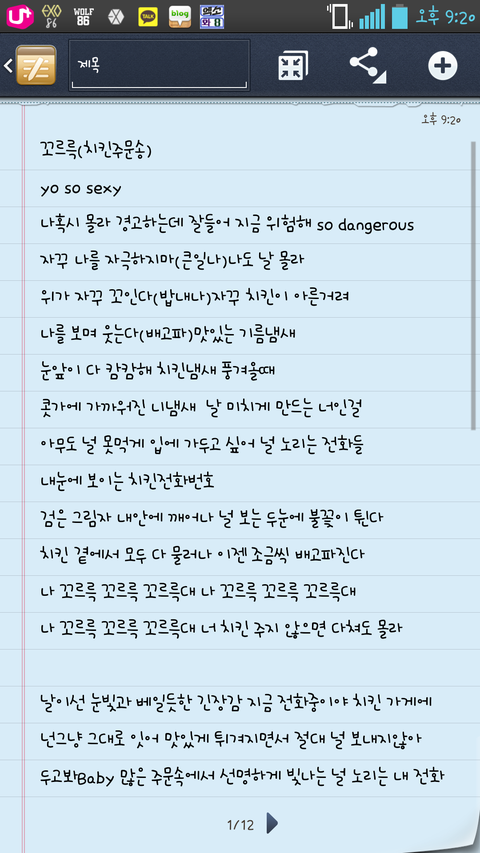 U+
EXO
86
WOLF
86
TALK
blog
오후 9:20
제목
오후 9:20
꼬르륵(치킨주문송)
yo so sexy
나혹시 몰라 경고하는데 잘들어 지금 위험해 so dangerous
자꾸 나를 자극하지마(큰일나)나도 날 몰라
위가 자꾸 꼬인다(밥내나)자꾸 치킨이 아른거려
나를 보며 웃는다(배고파)맛있는 기름냄새
눈앞이 다 캄캄해 치킨냄새 풍겨올때
콧가에 가까워진 니냄새  날 미치게 만드는 너인걸
아무도 널 못먹게 입에 가두고 싶어 널 노리는 전화들
내눈에 보이는 치킨전화번호
검은 그림자 내안에 깨어나 널 보는 두눈에 불꽃이 튄다
치킨 곁에서 모두 다 물러나 이젠 조금씩 배고파진다
나 꼬르륵 꼬르륵 꼬르륵대 나 꼬르륵 꼬르륵 꼬르륵대
나 꼬르륵 꼬르륵 꼬르륵대 너 치킨 주지 않으면 다쳐도 몰라
날이선 눈빛과 베일듯한 긴장감 지금 전화중이야 치킨 가게에
넌그냥 그대로 잇어 맛있게 튀겨지면서 절대 널 보내지않아
두고봐Baby 많은 주문속에서 선명하게 빛나는 널 노리는 내 전화
1/12